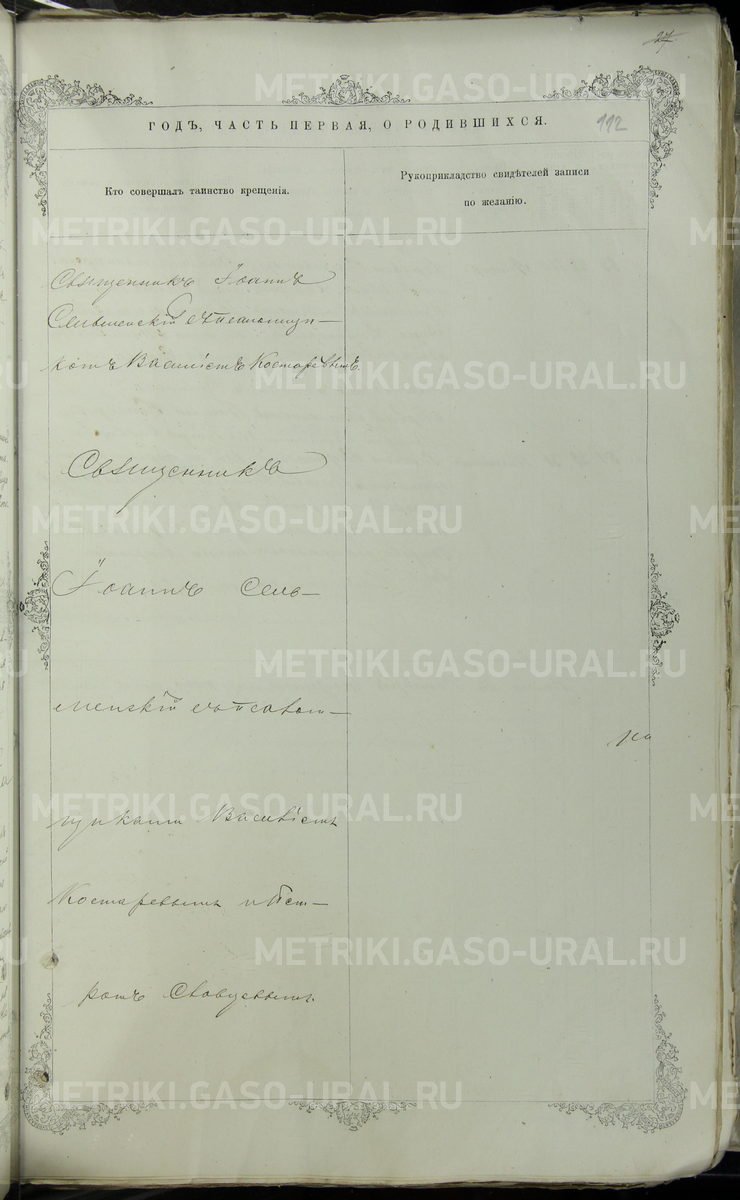 27
ГОДЪ, ЧАСТЬ ПЕРВАЯ, О РОДИВШИХСЯ.
112
Кто совершалъ таинство крещенія.
Рукоприкладство свидѣтелей записи
по желанію.
Священникъ Іоаннъ
Сельменскій съ псаломщи-
комъ Василіемъ Костаревымъ.
Священникъ
Іоаннъ Сель-
менскій съ псалом-
щиками Василіемъ
Костаревымъ и Пет-
ромъ
METRIKI.GASO-URAL.RU